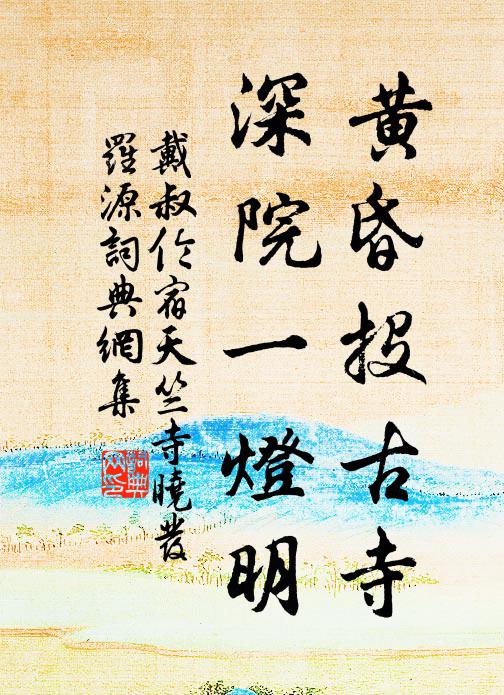 黃昏投古寺
深院一燈明
戴叔伦宿天竺寺曉發
羅源詞典網集